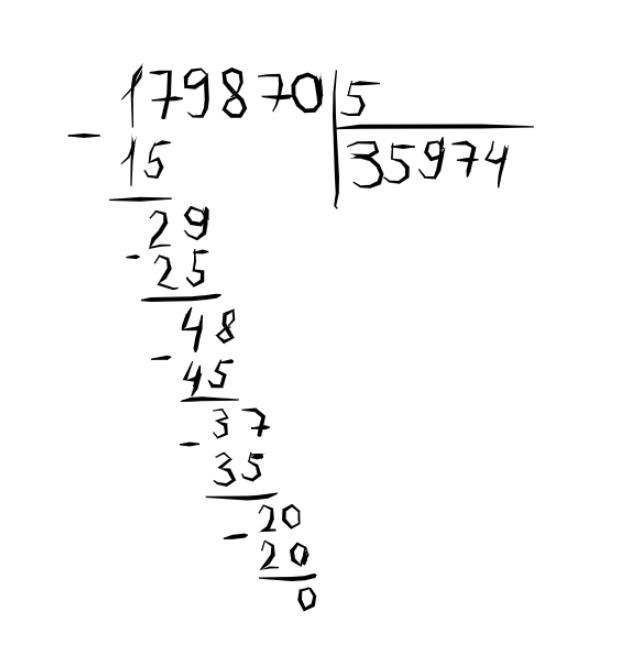 179870 5
- 15 35974
29
- 25
48
- 45
37
- 35
20
- 20
0